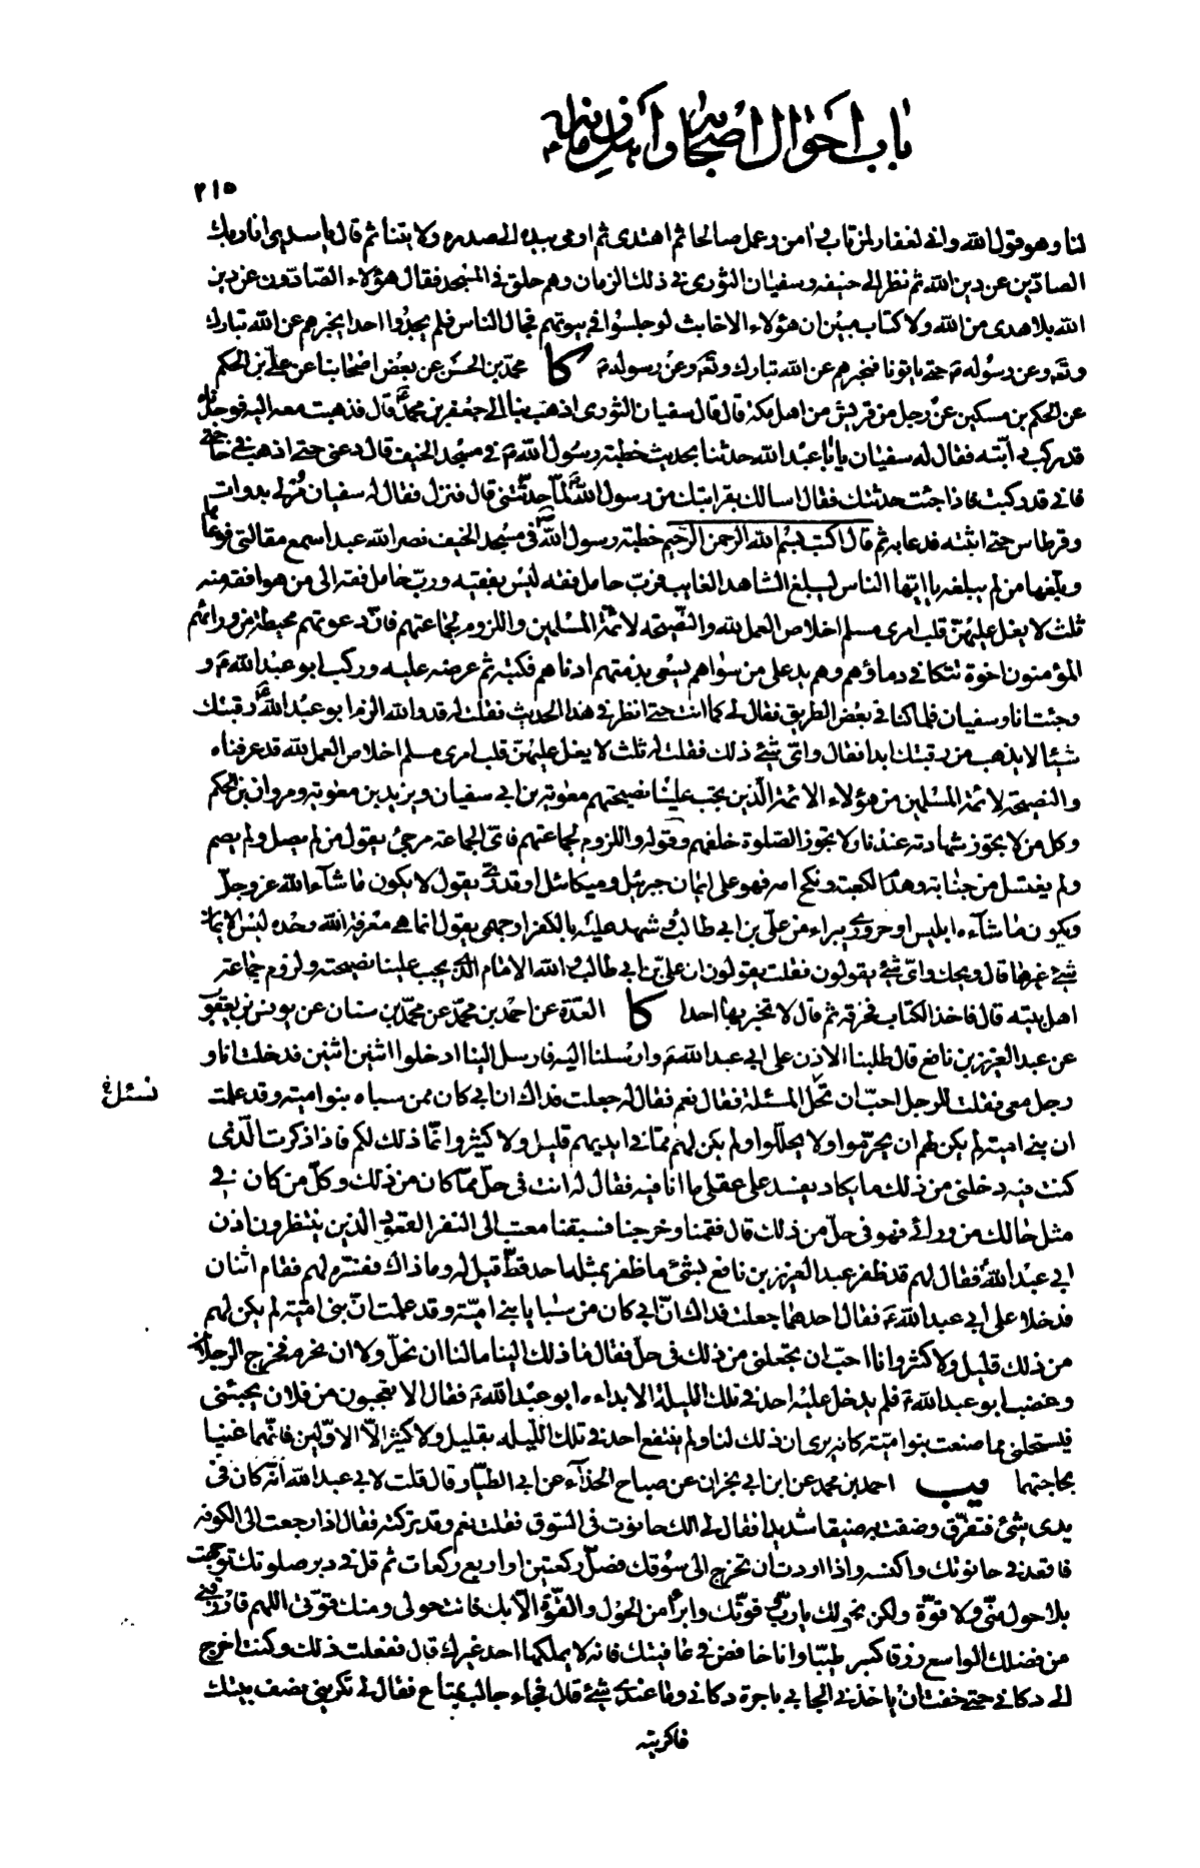 باب احوال اصحابه وأهل زمانه
٢١٥
لنا وهو قول الله وانى لغفار لمن تاب وامن وعمل صالحا ثم اهتدى ثم اومى بيده الى صدره ولايتنا ثم قال يا سدير افاريك
الصادّين عن دين الله ثم نظر الى حنيفه وسفيان الثورى فى ذلك الزمان وهم حلق فى المسجد فقال هؤلاء الصادّون عن دين
الله بلا هدى من الله ولا كتاب مبين ان هؤلاء الاخابث لو جلسوا فى بيوتهم فجال الناس فلم يجدوا احدا يخبرهم عن الله تبارك
وتع وعن رسوله ص حتى ياتونا فنخبرهم عن الله تبارك وتع وعن رسوله ص كا محمد بن الحسن عن بعض اصحابنا عن على بن الحكم
عن الحكم بن مسكين عن رجل من قريش من اهل مكة قال قال سفيان الثورى اذهب بنا الى جعفر بن محمد ع قال فذهبت معه اليه فوجدناه
قد ركب دابّته فقال له سفيان يا ابا عبد الله حدثنا بحديث خطبة رسول الله ص فى مسجد الخيف قال دعنى حتى اذهب فى حاجتى
فانى قد ركبت فاذا جئت حدثتك فقال اسالك بقرابتك من رسول الله ص لمّا حدثتنى قال فنزل فقال له سفيان مر لى بدوات
وقرطاس حتى اثبته فدعا به ثم قال اكتب بسم الله الرحمن الرحيم خطبة رسول الله ص فى مسجد الخيف نضر الله عبدا سمع مقالتى فوعاها
وبلّغها من لم يبلغه يا ايّها الناس ليبلغ الشاهد الغايب فربّ حامل فقه ليس بفقيه وربّ حامل فقه الى من هو افقه منه
ثلث لا يغل عليهنّ قلب امرئ مسلم اخلاص العمل لله والنّصيحة لائمّة المسلمين واللزوم لجماعتهم فانّ دعوتهم محيطة من ورائهم
المؤمنون اخوة تتكافى دماؤهم وهم يد على من سواهم يسعى بذمتهم ادناهم فكتبه ثم عرضه عليه وركب ابو عبد الله ع و
وجئت انا وسفيان فلما كنا فى بعض الطريق فقال لى كما انت حتى انظر فى هذا الحديث فقلت له قد والله الزم ابو عبد الله ع رقبتك
شيئا لا يذهب من رقبتك ابدا فقال واىّ شئ ذلك فقلت له ثلث لا يغل عليهنّ قلب امرئ مسلم اخلاص العمل لله قد عرفناه
والنصيحة لائمة المسلمين من هؤلاء الائمة الّذين يجب علينا نصيحتهم معوية بن ابى سفيان ويزيد بن معوية ومروان بن الحكم
وكل من لا يجوز شهادته عندنا ولا يجوز الصّلوة خلفهم وقوله واللزوم لجماعتهم فاىّ الجماعة مرجئ يقول من لم يصل ولم يصم
ولم يغتسل من جنابة وهدم الكعبة ونكح امه فهو على ايمان جبرئيل وميكائيل او قدرى يقول لا يكون ما شآء الله عز وجلّ
ويكون ما شآء ابليس او حرورى يبراء من علىّ بن ابى طالب وشهد عليه بالكفر او جهمى يقول انما هى معرفة الله وحده ليس الايمان
شئ غيرها قال ويحك واىّ شئ يقولون فقلت يقولون ان علىّ بن ابى طالب والله الامام الذى يجب علينا نصيحته ولزوم جماعته
اهل بيته قال فاخذ الكتاب فخرقه ثم قال لا تخبر بها احدا كا العدّة عن احمد بن محمّد عن محمّد بن سنان عن يونس بن يعقوب
عن عبد العزيز بن نافع قال طلبنا الاذن على ابى عبد الله ع وارسلنا اليه فارسل الينا ادخلوا اثنين اثنين فدخلت انا و
رجل معى فقلت للرجل احبّ ان تحل المسئلة فقال نعم فقال له جعلت فداك ان ابى كان ممن سباه بنو امية وقد علمت
نسئل خ
ان بنى امية لم يكن لهم ان يحرّموا ولا يحلّلوا ولم يكن لهم ممّا فى ايديهم قليل ولا كثير وانّما ذلك لكم فاذا ذكرت الّذى
كنت فيه دخلنى من ذلك ما يكاد يفسد على عقلى ما انا فيه فقال له انت فى حلّ ممّا كان من ذلك وكلّ من كان فى
مثل حالك من ورائى فهو فى حلّ من ذلك قال فقمنا وخرجنا فسبقنا معتب الى النفر القعود الذين ينتظرون اذن
ابى عبد الله فقال لهم قد ظفر عبد العزيز بن نافع بشئ ما ظفر بمثله احد قطّ قيل له وما ذاك ففسّره لهم فقام اثنان
فدخلا على ابى عبد الله ع فقال احدهما جعلت فداك انّ ابى كان من سبايا بنى اميّة وقد علمت انّ بنى اميّة لم يكن لهم
من ذلك قليل ولا كثير وانا احبّ ان تجعلنى من ذلك فى حلّ فقال ما ذلك الينا ما لنا ان نحلّ ولا ان نحرم فخرج الرجلان
وغضب ابو عبد الله ع فلم يدخل عليه احد فى تلك الليلة الا بداءه ابو عبد الله ع فقال الا تعجبون من فلان يجيئنى
فيستحلنى مما صنعت بنو اميّة كانه يرى ان ذلك لنا ولم ينتفع احد فى تلك اللّيله بقليل ولا كثير الّا الاوّلين فانّهما غنيا
بحاجتهما يب احمد بن محمد عن ابن ابى نجران عن صباح الحذآء عن ابى الطيّار قال قلت لابى عبد الله انّه كان فى
يدى شئ فتفرّق وضقت به ضيقا شديدا فقال لى الك حانوت فى السّوق فقلت نعم وقد تركته فقال اذا رجعت الى الكوفه
فاقعد فى حانوتك واكنسه واذا اردت ان تخرج الى سوقك فصلّ ركعتين او اربع ركعات ثم قل فى دبر صلوتك توجّهت
بلا حول منّى ولا قوّة ولكن بحولك يا ربّ وقوّتك وابرأ من الحول والقوّة الّا بك فانت حولى ومنك قوّتى اللهم فارزقنى
من فضلك الواسع رزقا كثيرا طيّبا وانا خافض فى عافيتك فانه لا يملكها احد غيرك قال ففعلت ذلك وكنت اخرج
الى دكانى حتى خفت ان ياخذنى الجابى باجرة دكانى وما عندى شئ قال فجاء جالب بمتاع فقال لى تكرينى نصف بيتك
فاكريته